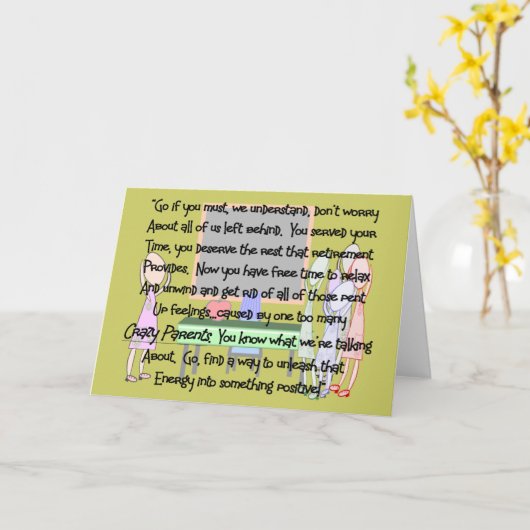 "Go if you must, we understand. Don't worry
About all of us left behind. You served your
Time, you deserve the rest that retirement
Provides. Now you have free time to relax
And unwind and get rid of all of those pent
Up feelings...caused by one too many
Crazy Parents. You know what we're talking
About. Go, find a way to unleash that
Energy into something positive!